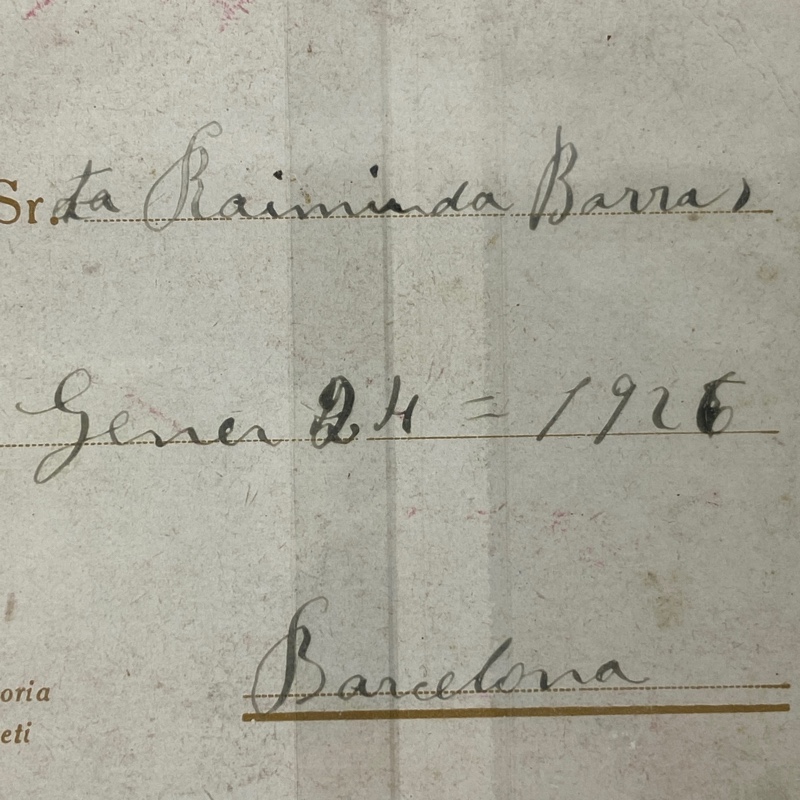 Sr.ta Raimunda Barras
Gener 24 = 1926
Barcelona
oria
eti